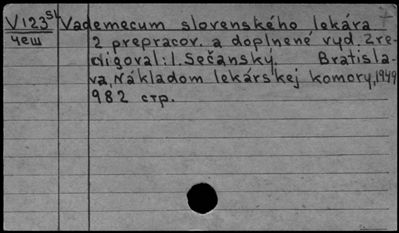 V 123 sl Vademecum slovenského lekára
чеш 2 prepracov. a doplnené vyd. Zre-
digoval: I. Sečanský. Bratisla-
va, Nákladom lekárskej komory, 1949
982 стр.